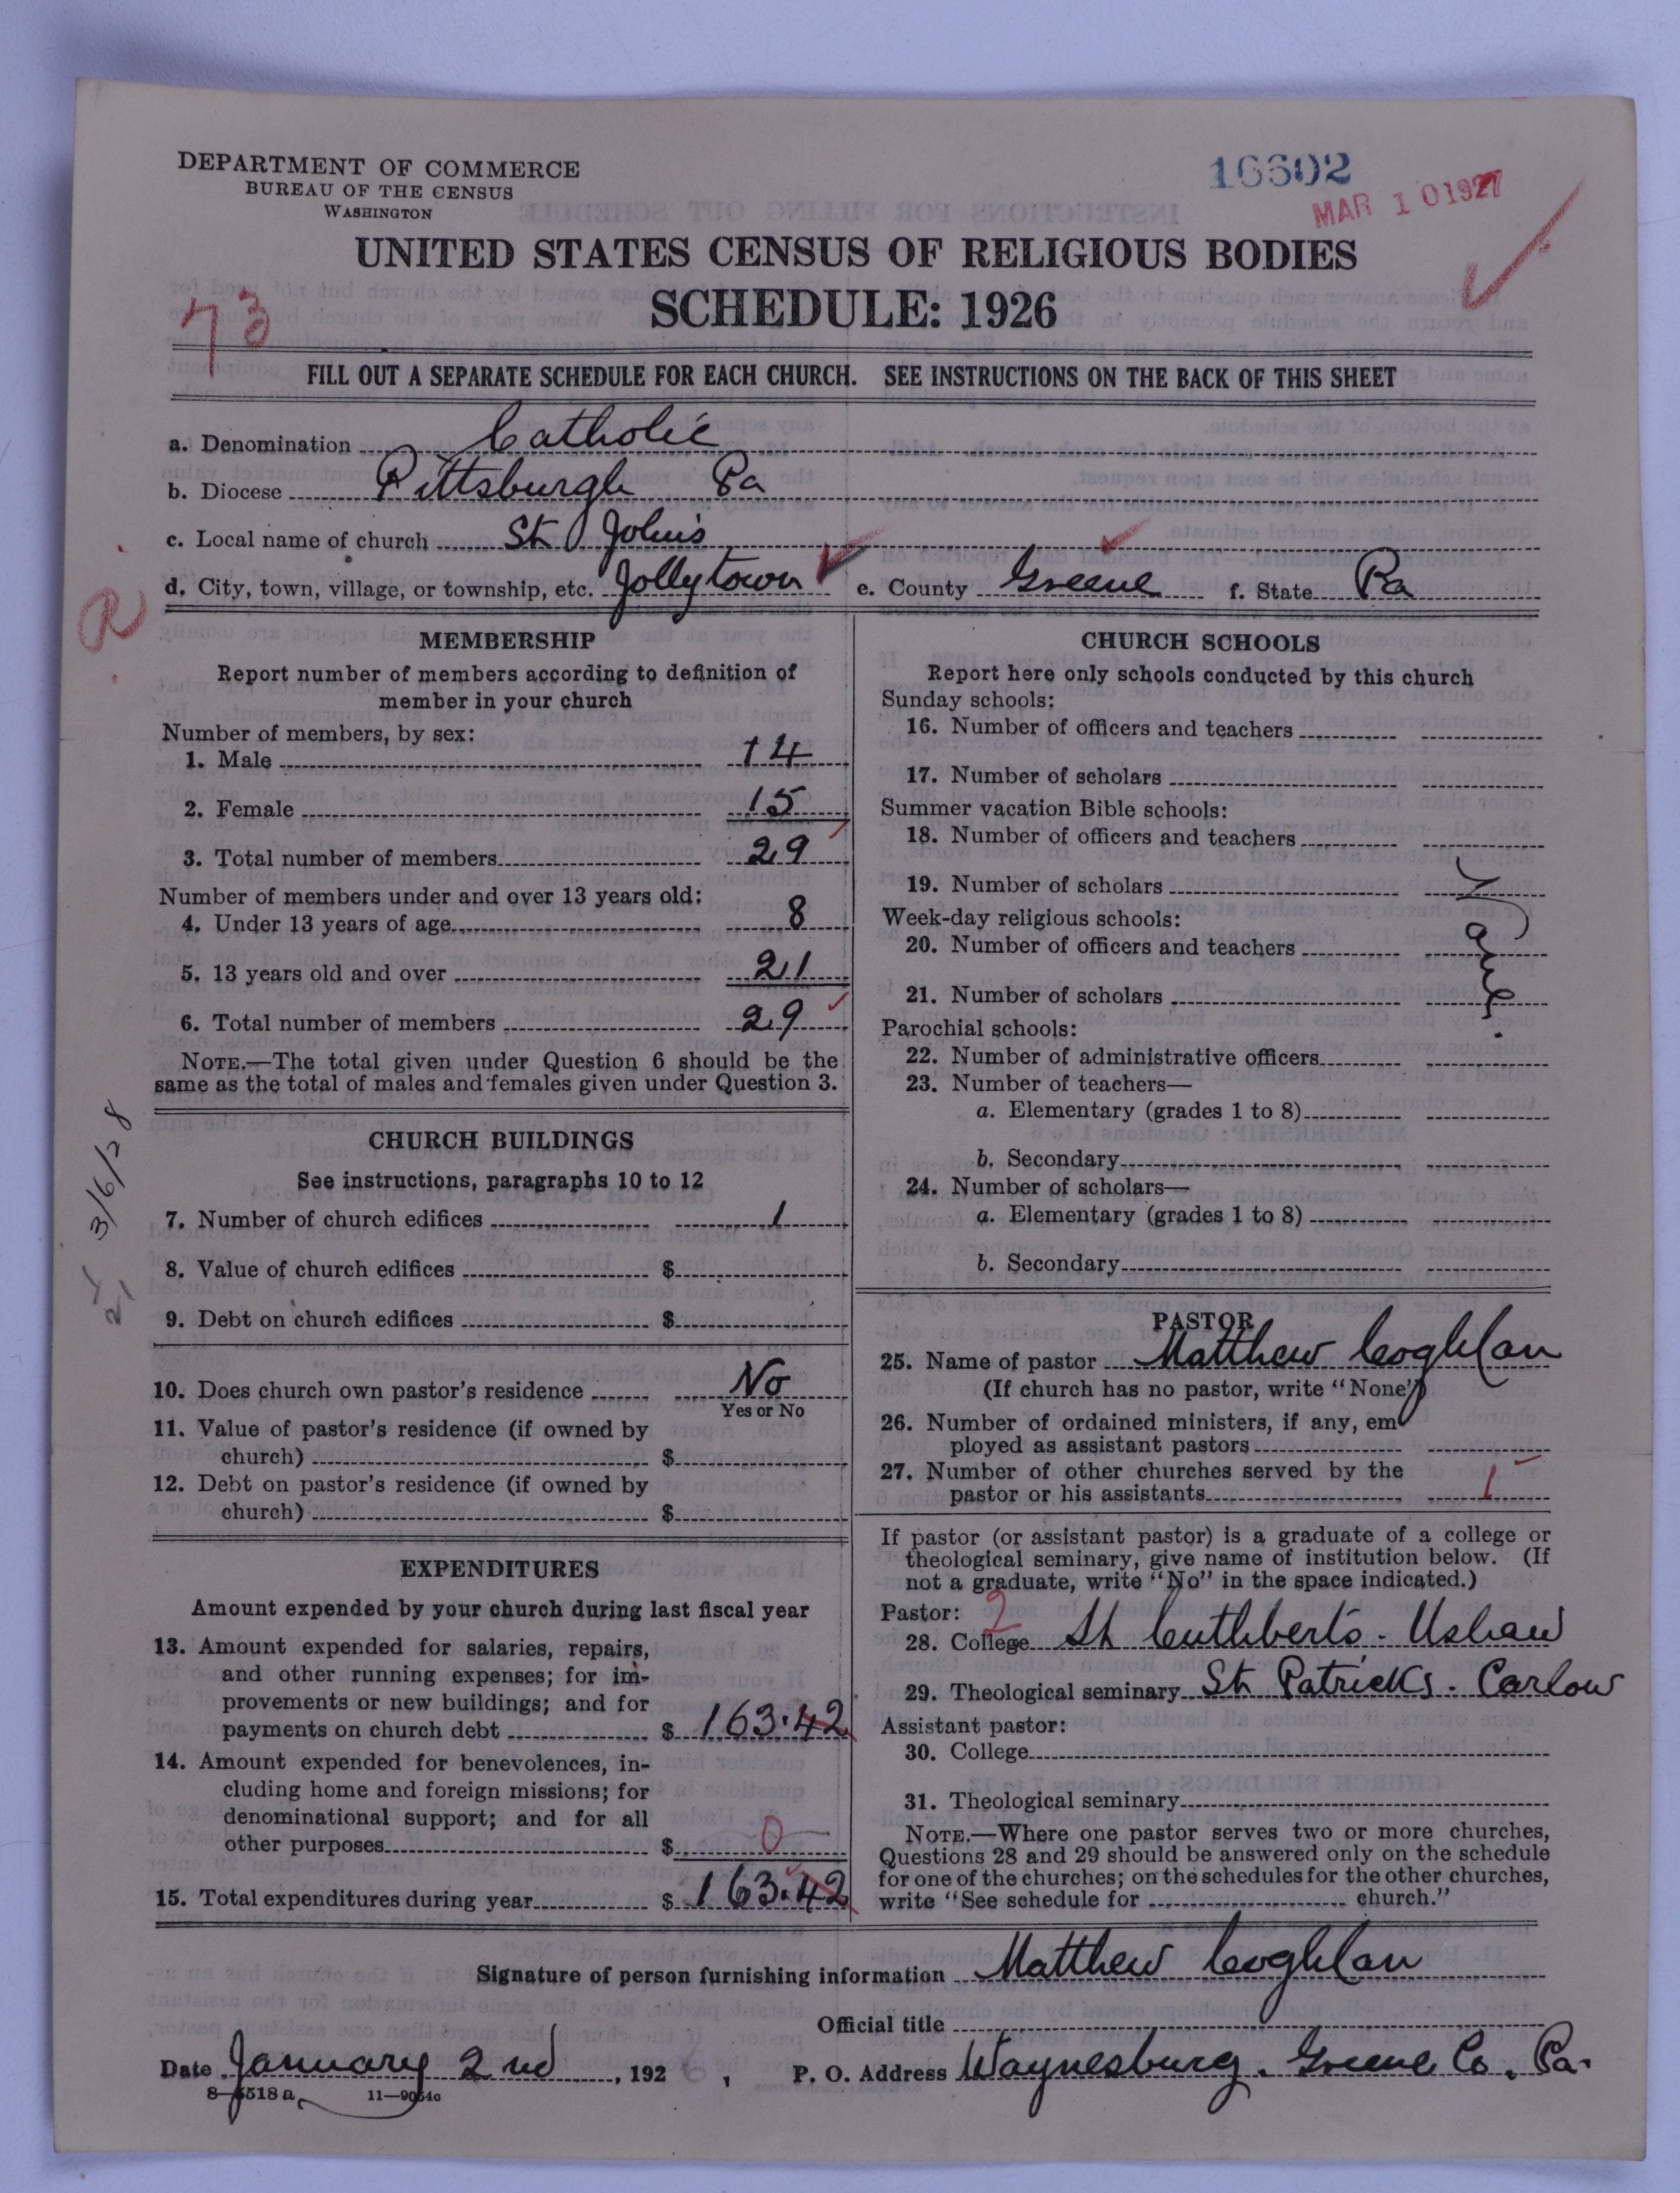 DEPARTMENT OF COMMERCE
BUREAU OF THE CENSUS
WASHINGTON
16602
MAR 10 1927
UNITED STATES CENSUS OF RELIGIOUS BODIES
SCHEDULE: 1926
73
FILL OUT A SEPARATE SCHEDULE FOR EACH CHURCH. SEE INSTRUCTIONS ON THE BACK OF THIS SHEET
a. Denomination Catholic
b. Diocese Pittsburgh Pa
c. Local name of church St John's
d. City, town, village, or township, etc. Jollytown e. County Greene f. State Pa
R
MEMBERSHIP
Report number of members according to definition of
member in your church
Number of members, by sex:
1. Male 14
2. Female 15
3. Total number of members 29
Number of members under and over 13 years old:
4. Under 13 years of age 8
5. 13 years old and over 21
6. Total number of members 29
NOTE.—The total given under Question 6 should be the
same as the total of males and females given under Question 3.
3/6/28
CHURCH BUILDINGS
See instructions, paragraphs 10 to 12
7. Number of church edifices 1
8. Value of church edifices $
9. Debt on church edifices $
10. Does church own pastor's residence No
Yes or No
11. Value of pastor's residence (if owned by
church) $
12. Debt on pastor's residence (if owned by
church) $
EXPENDITURES
Amount expended by your church during last fiscal year
13. Amount expended for salaries, repairs,
and other running expenses; for im-
provements or new buildings; and for
payments on church debt $ 163.42
14. Amount expended for benevolences, in-
cluding home and foreign missions; for
denominational support; and for all
other purposes $ 0
15. Total expenditures during year $ 163.42
CHURCH SCHOOLS
Report here only schools conducted by this church
Sunday schools:
16. Number of officers and teachers
17. Number of scholars
Summer vacation Bible schools:
18. Number of officers and teachers
19. Number of scholars
Week-day religious schools:
20. Number of officers and teachers
21. Number of scholars
None.
Parochial schools:
22. Number of administrative officers
23. Number of teachers—
a. Elementary (grades 1 to 8)
b. Secondary
24. Number of scholars—
a. Elementary (grades 1 to 8)
b. Secondary
PASTOR
25. Name of pastor Matthew Coghlan
(If church has no pastor, write "None")
26. Number of ordained ministers, if any, em
ployed as assistant pastors
27. Number of other churches served by the
pastor or his assistants 1
If pastor (or assistant pastor) is a graduate of a college or
theological seminary, give name of institution below. (If
not a graduate, write "No" in the space indicated.)
Pastor: 2
28. College St Cuthbert's - Ushaw
29. Theological seminary St Patrick's. Carlow
Assistant pastor:
30. College
31. Theological seminary
NOTE.—Where one pastor serves two or more churches,
Questions 28 and 29 should be answered only on the schedule
for one of the churches; on the schedules for the other churches,
write "See schedule for church."
Signature of person furnishing information Matthew Coghlan
Official title
Date January 2nd, 192 , P. O. Address Waynesburg. Greene Co. Pa.
8—5518a 11—9054c